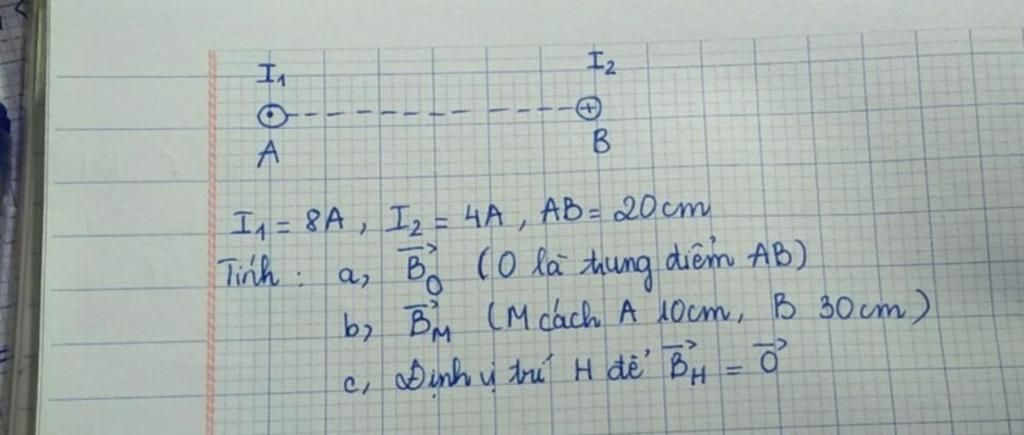 I₁ I₂
A B
I₁ = 8A, I₂ = 4A, AB = 20cm
Tính: a, B⃗_O (O là trung điểm AB)
b, B⃗_M (M cách A 10cm, B 30cm)
c, Định vị trí H để B⃗_H = 0⃗